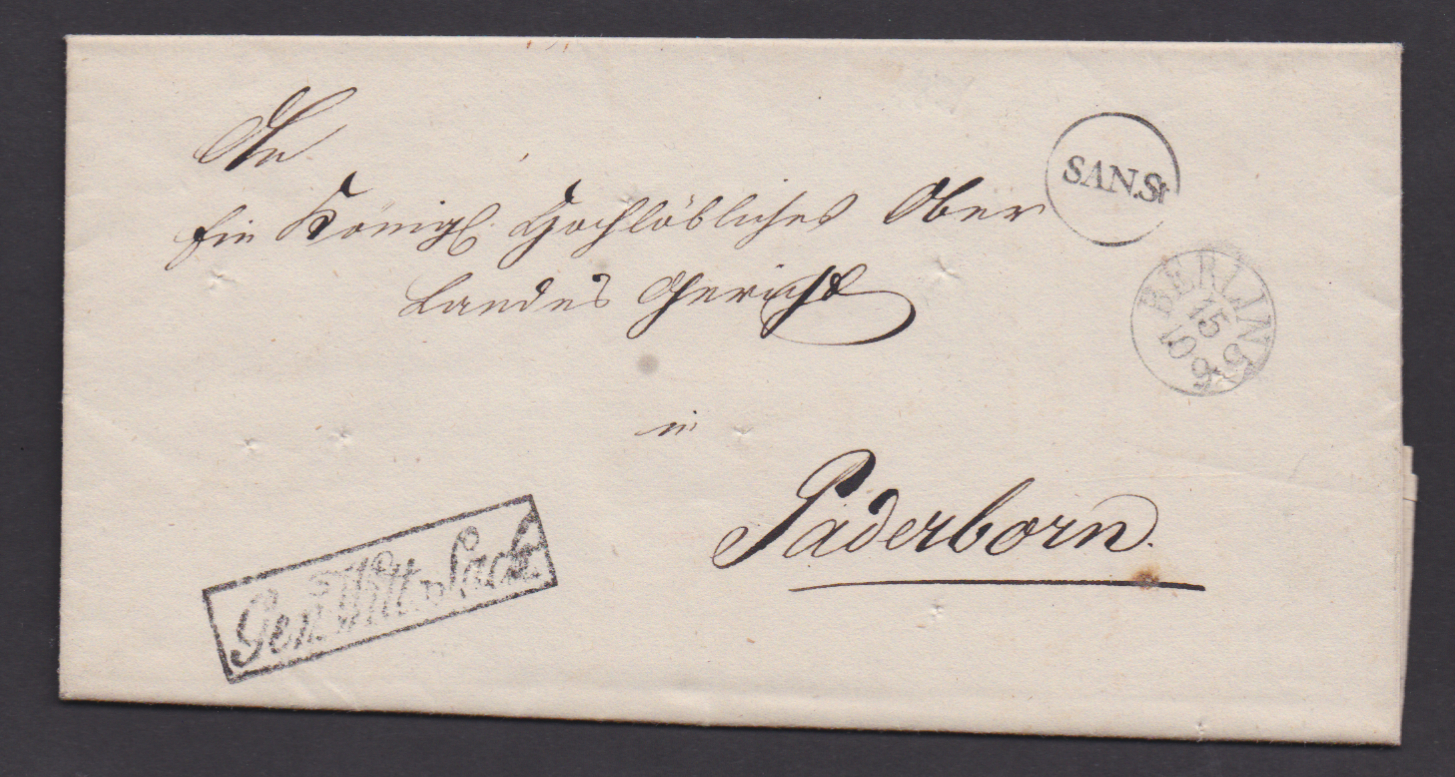 An
Ein Königl. Hochlöbliches Ober
Landes Gericht
in
Paderborn.
SAN.St
BERLIN
15
10
Gen. Witt. Sach